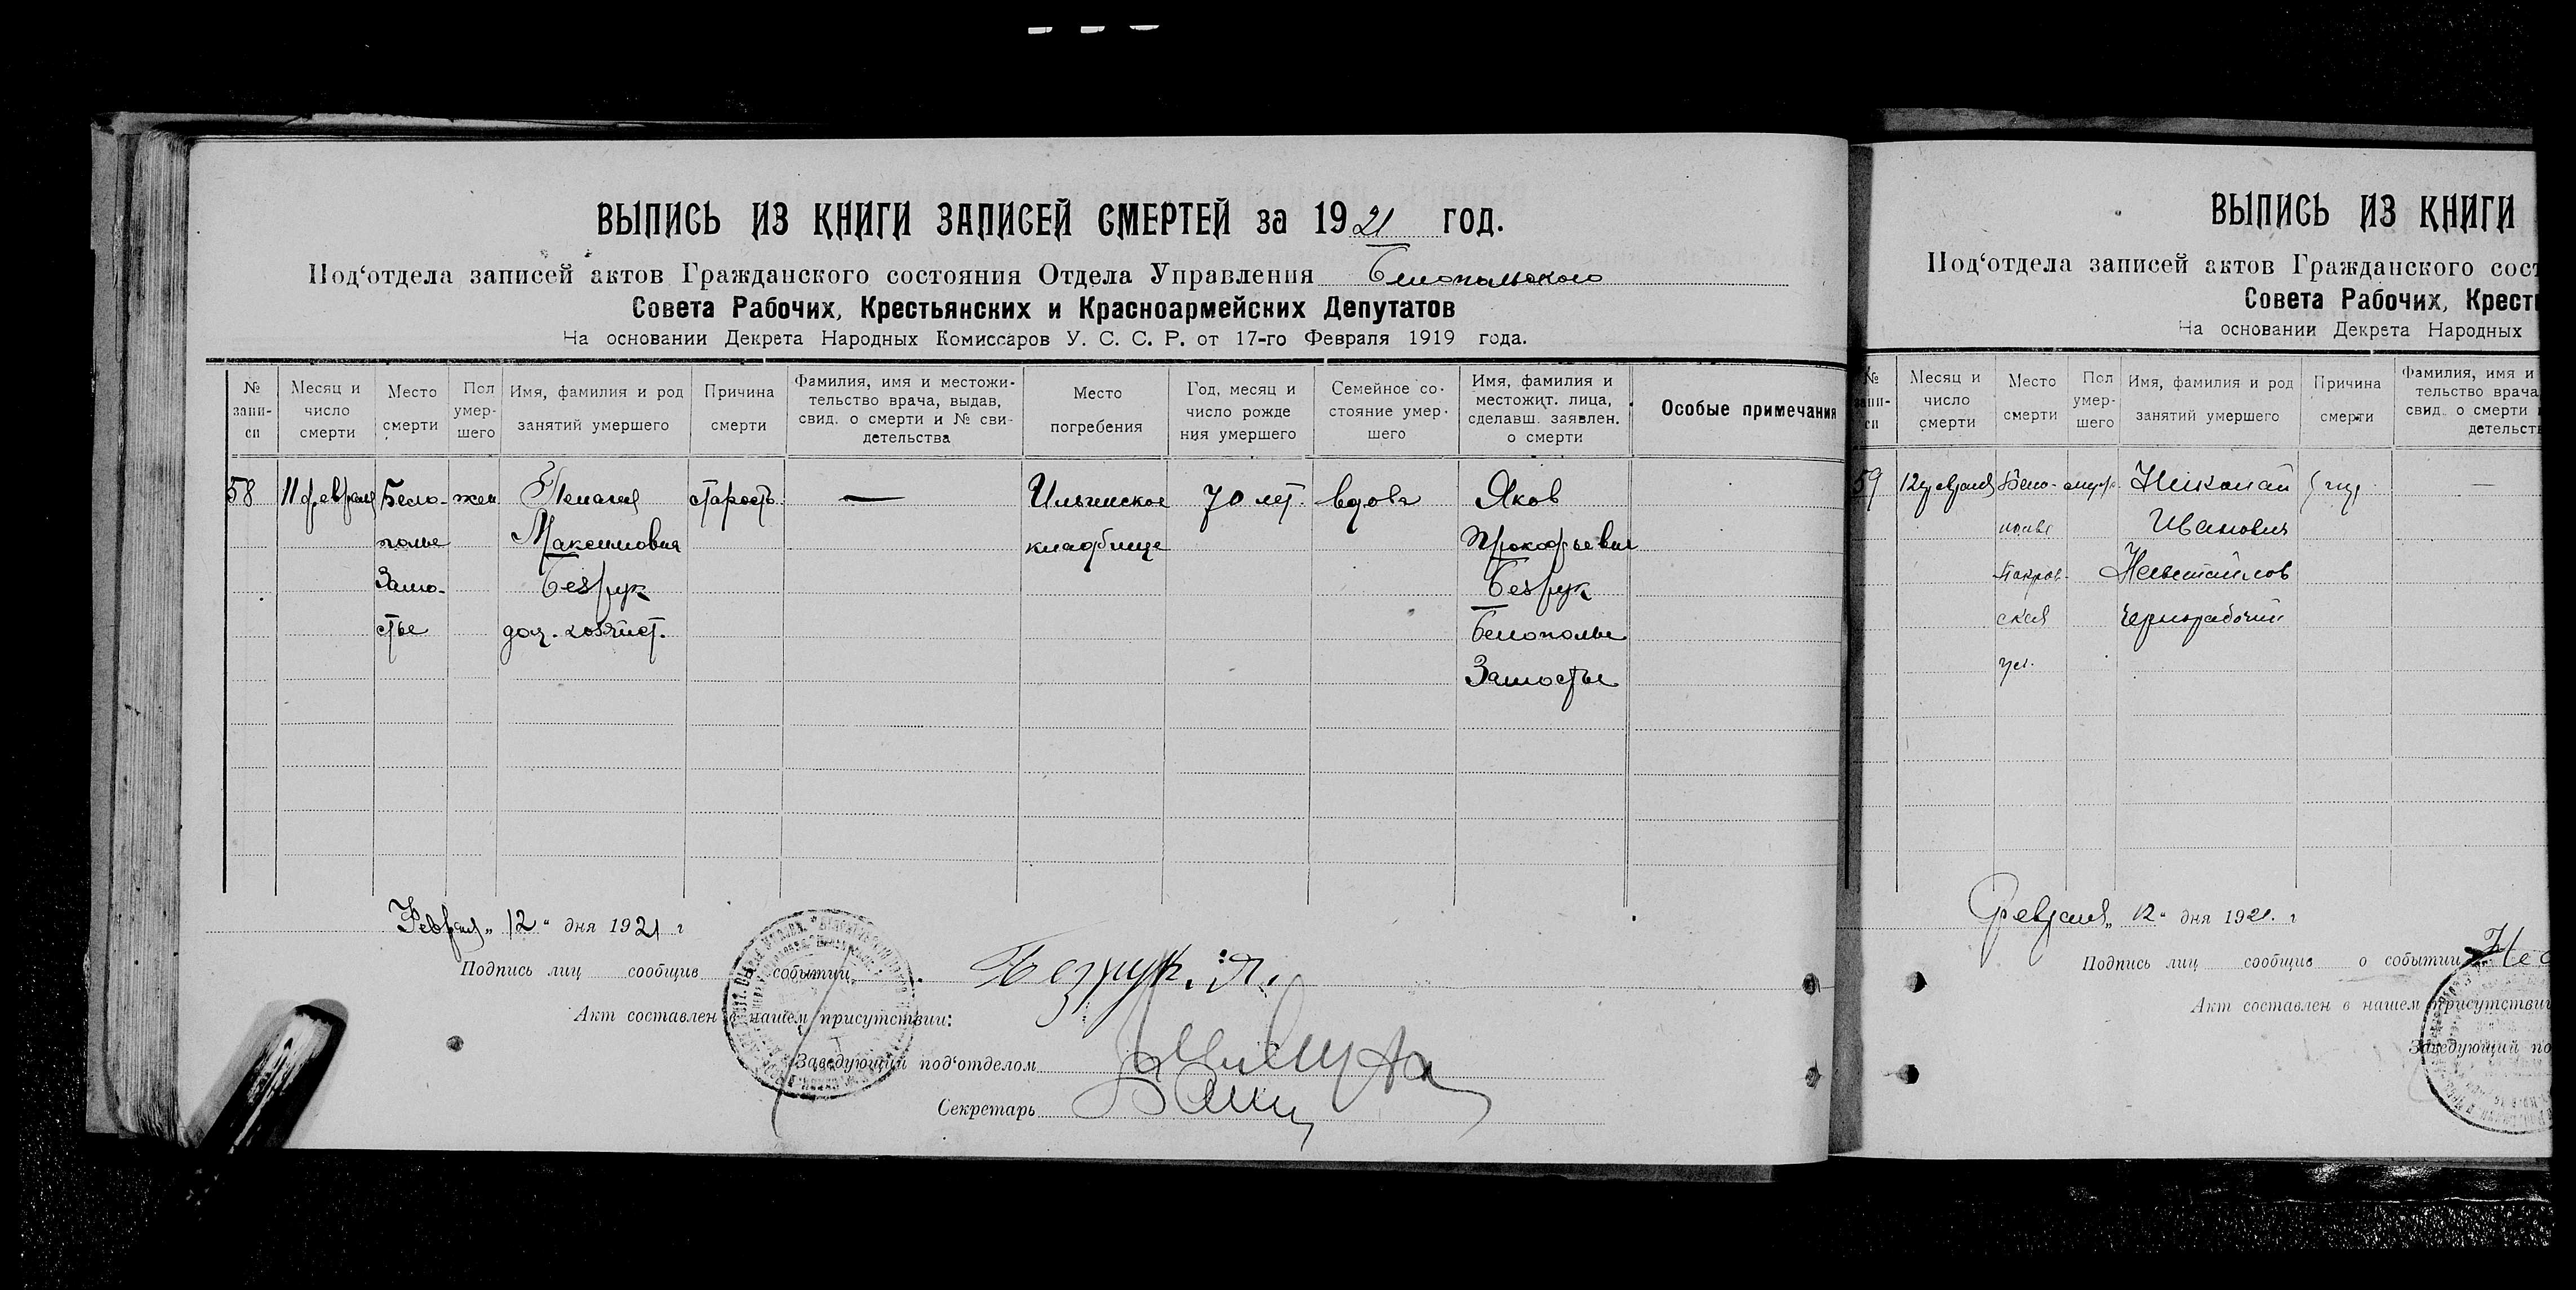 ВЫПИСЬ ИЗ КНИГИ ЗАПИСЕЙ СМЕРТЕЙ за 1921 год.
Под‘отдела записей актов Гражданского состояния Отдела Управления Белопольского
Совета Рабочих, Крестьянских и Красноармейских Депутатов
На основании Декрета Народных Комиссаров У. С. С. Р. от 17-го Февраля 1919 года.
№ запи-си
Месяц и число смерти
Место смерти
Пол умер-шего
Имя, фамилия и род занятий умершего
Причина смерти
Фамилия, имя и местожи-тельство врача, выдав, свид. о смерти и № сви-детельства
Место погребения
Год, месяц и число рожде ния умершего
Семейное со-стояние умер-шего
Имя, фамилия и местожит. лица, сделавш. заявлен. о смерти
Особые примечания
58 11 февраля Бело- жен. Пелагия старость — Ильинское 70 лет. вдова Яков
полье Максимовна кладбище Прокофьевич
Замо- Безрук Безрук
стье дом. хозяйст. Белополье
Замостье
Февраля „12“ дня 1921 г
Подпись лиц сообщив событии Безрук. Я.
Акт составлен в нашем присутствии:
Заведующий под‘отделом
Секретарь
ВЫПИСЬ ИЗ КНИГИ
Под‘отдела записей актов Гражданского сост
Совета Рабочих, Кресть
На основании Декрета Народных
№ запи-си
Месяц и число смерти
Место смерти
Пол умер-шего
Имя, фамилия и род занятий умершего
Причина смерти
Фамилия, имя и тельство врача свид. о смерти детельств
59 12 февраля Бело- муж. Николай —
полье Иванович
Покров-
ская чернорабочий
ул.
Февраля „12“ дня 1921 г
Подпись лиц сообщив о событии
Акт составлен в нашем присутствии
Заведующий по